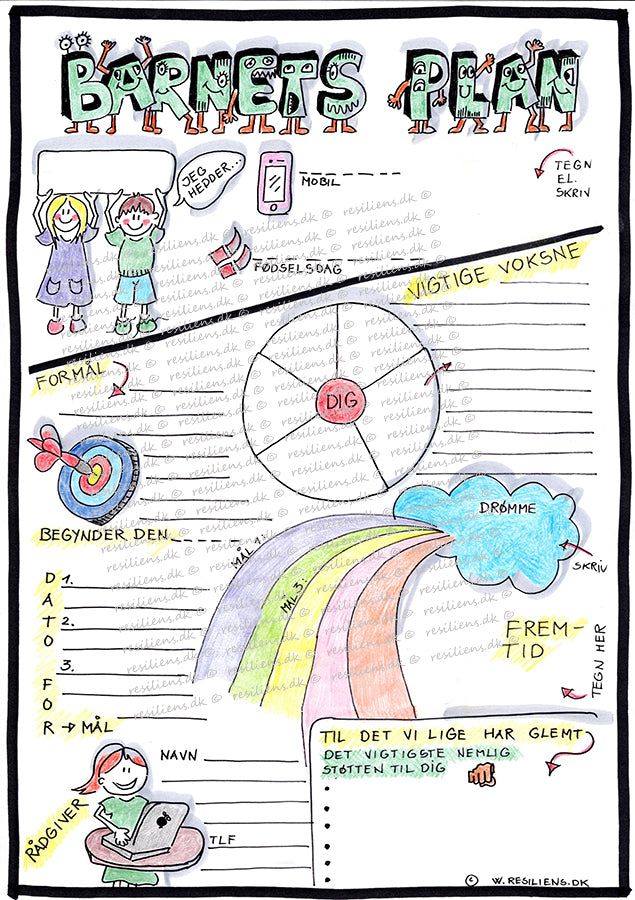 BARNETS PLAN
JEG
HEDDER...
MOBIL
TEGN
EL.
SKRIV
FØDSELSDAG
VIGTIGE VOKSNE
FORMÅL
DIG
BEGYNDER DEN
DRØMME
SKRIV
MÅL 1:
MÅL 3:
DATO FOR
1.
2.
3.
→ MÅL
FREM-
TID
TEGN HER
TIL DET VI LIGE HAR GLEMT
DET VIGTIGSTE NEMLIG
STØTTEN TIL DIG
NAVN
RÅDGIVER
TLF
© W.RESILIENS.DK
resiliens.dk ©